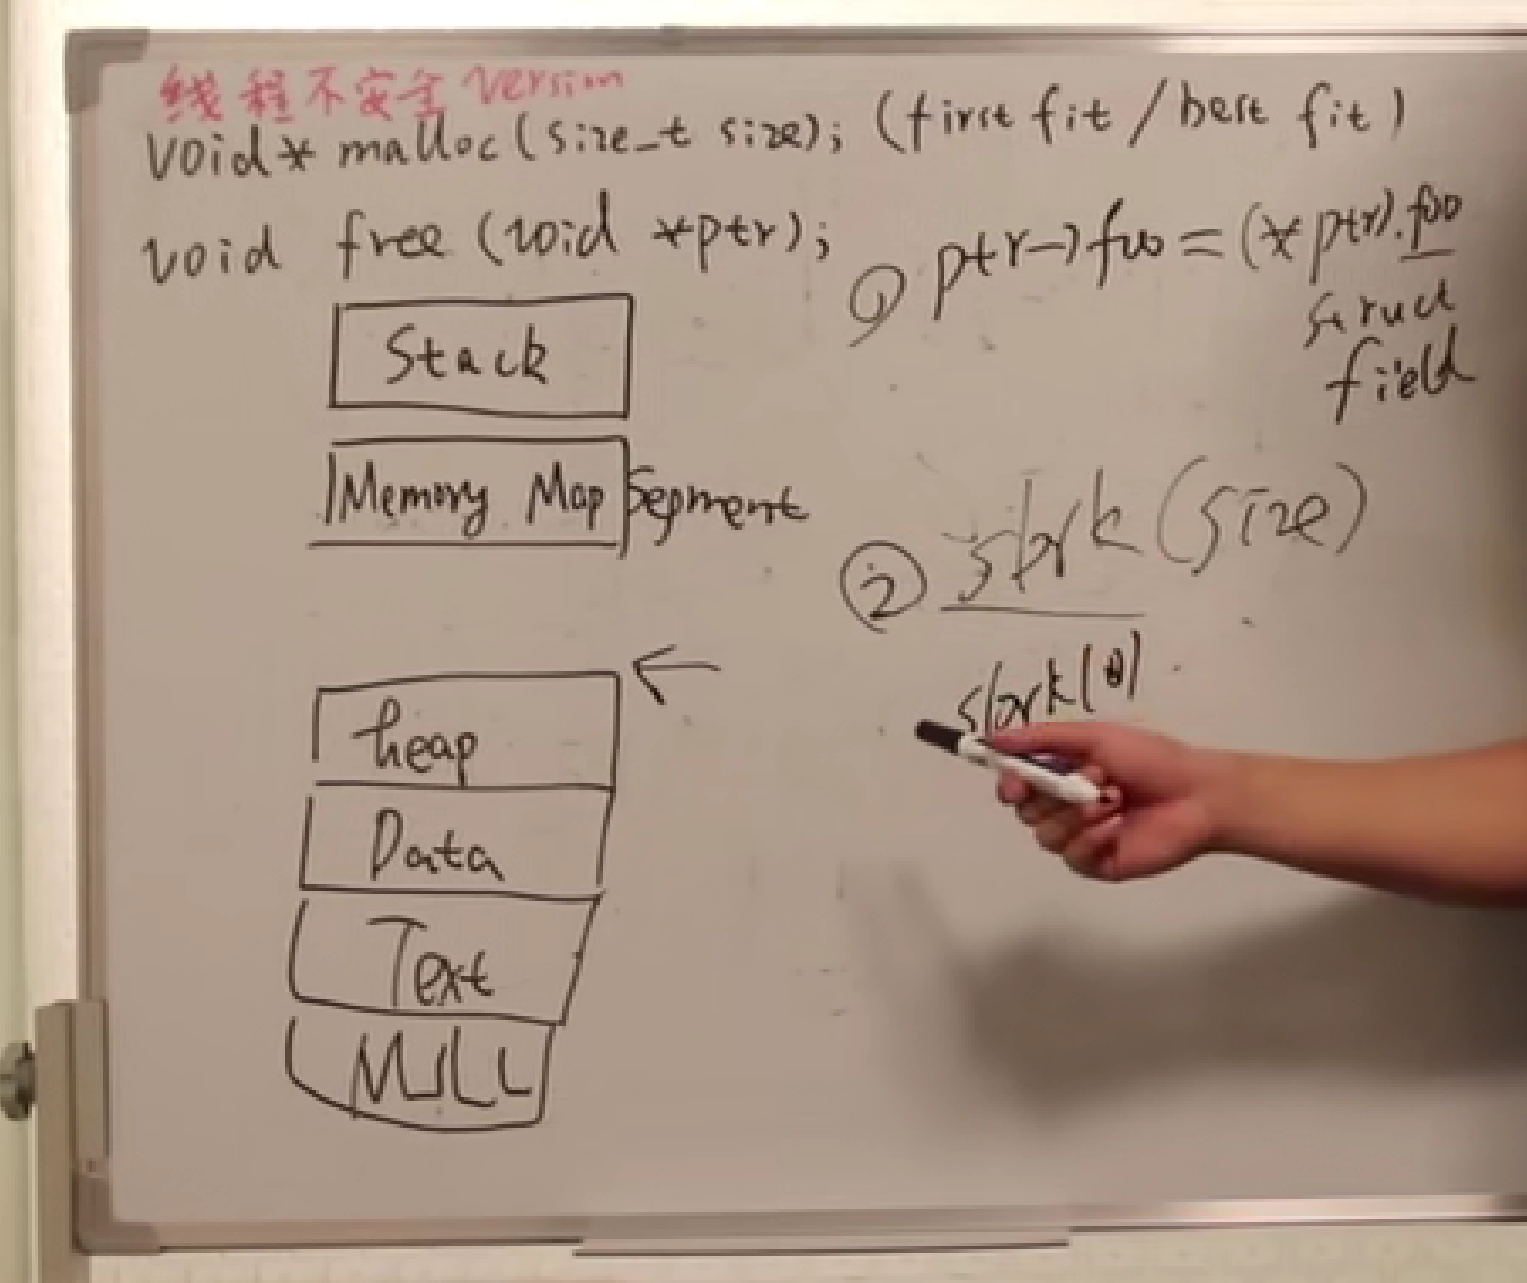 线程不安全 version
void* malloc(size_t size); (first fit / best fit)
void free (void *ptr);
① ptr->foo = (*ptr).foo
struct
field
Stack
Memory Map Segment
② sbrk(size)
sbrk(0)
heap
Data
Text
NULL